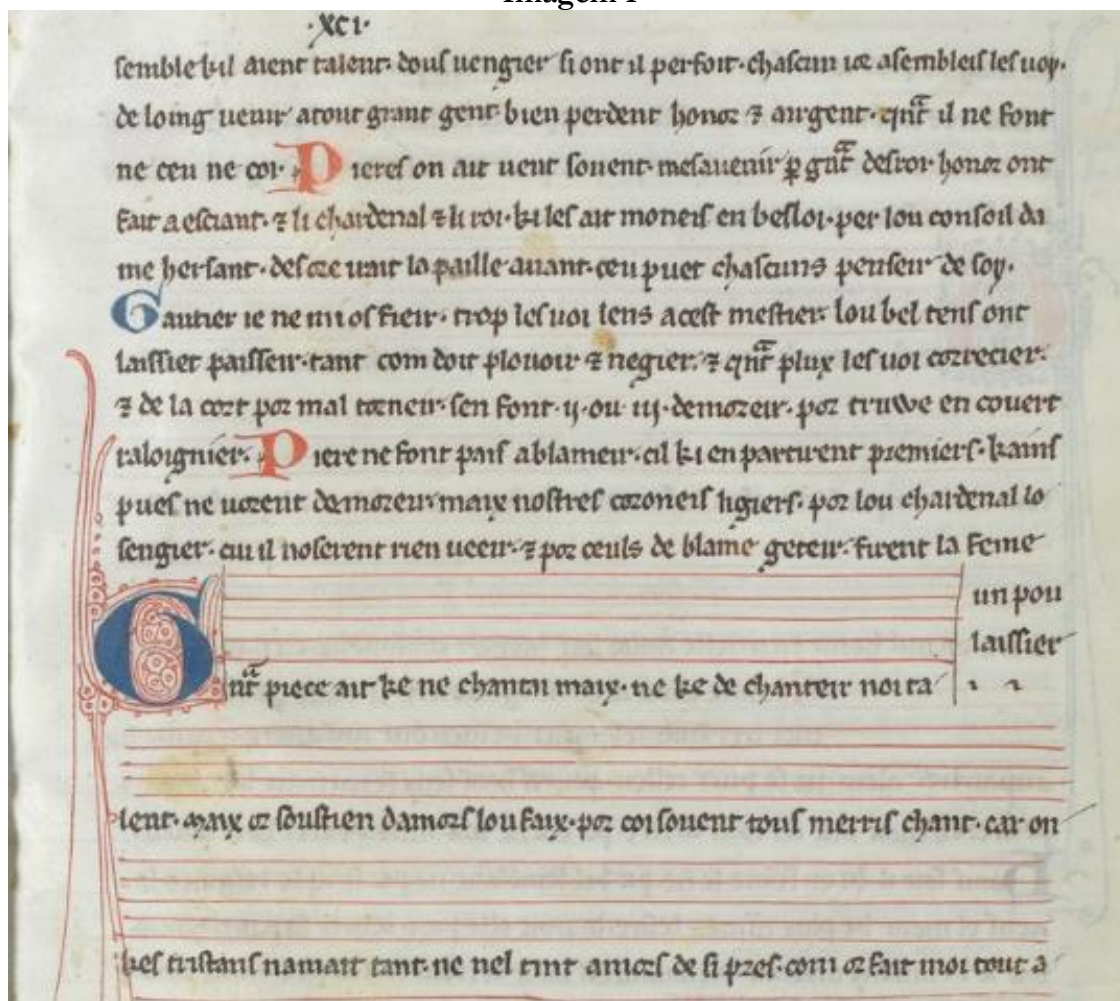 Imagem 1
.xci.
semble kil aient talent. dous uengier si ont il perfoit. chascun ior asembleis les uoy.
de loing uenir atout grant gent. bien perdent honor ⁊ airgent. qnᵃt il ne font
ne ceu ne cor. Pieres on ait ueut souent. mesauenir ꝑ gnᵃt desroi. honor ont
fait a esciant. ⁊ li chardenal ⁊ li roi. ki les ait moneis en besloi. per lou consoil da
me hersant. desore uait la paille auant. ceu puet chascuns penseir de soy.
Gautier ie ne mi os fieir. trop les uoi lens a cest mestier. lou bel tens ont
laissier paisseir. tant com doit plouoir ⁊ negier. ⁊ qnᵃt plux les uoi correcier.
⁊ de la cort por mal torneir. sen font .ij. ou .iij. demoreir. por truwe en couert
raloignier. Piere ne font pais a blameir. cil ki en partirent premiers. kains
pues ne uorent demoreir. maix nostres coroneis ligiers. por lou chardenal lo
sengier. cui il noserent rien ueeir. ⁊ por ceuls de blame geteir. firent la feme
un pou
laissier
Gnᵃt piece ait ke ne chantai maix. ne ke de chanteir noi ta
lent. maix or soustien damors lou faix. por coi souent tous merris chant. car on
kes tristans namait tant. ne nel tint amors de si pres. com or fait moi tout a